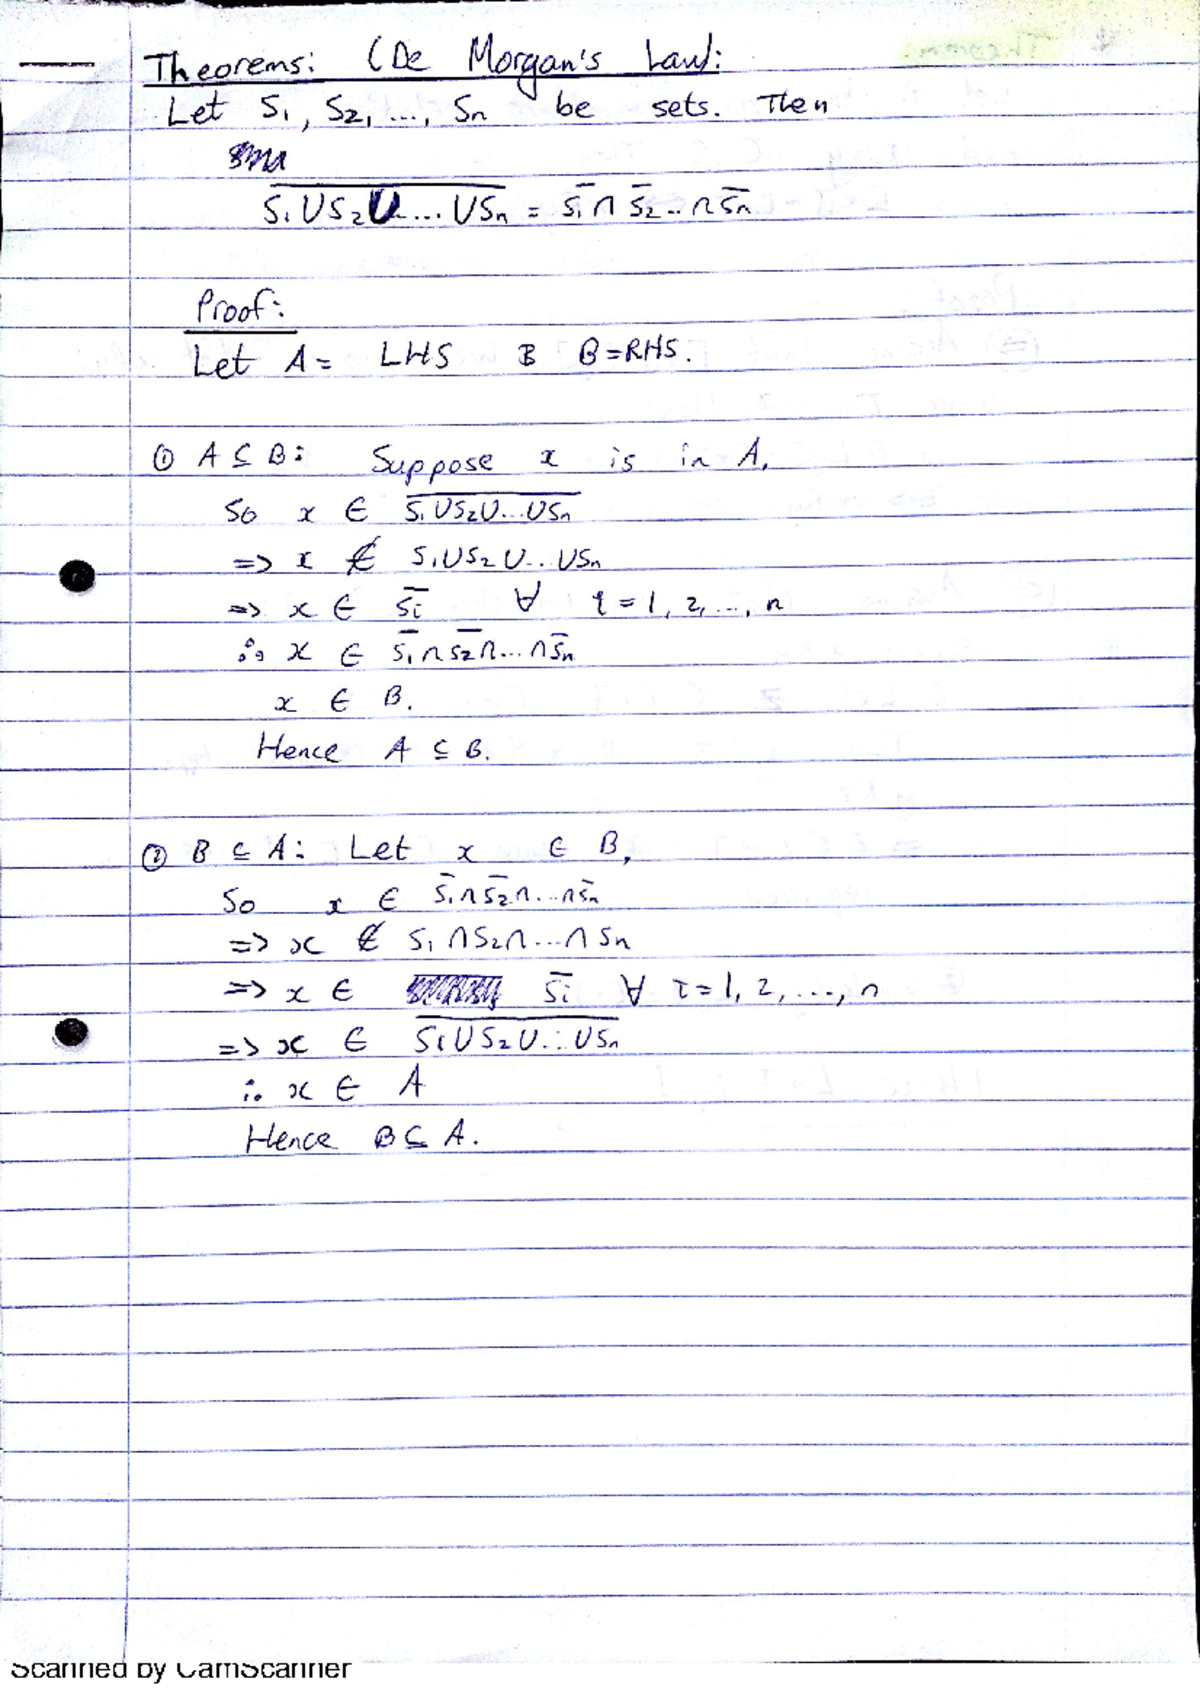 Theorems: (De Morgan's Law):
Let S₁, S₂, ..., Sₙ be sets. Then
S̅₁̅ ̅U̅S̅₂̅ ̅U̅ ̅.̅.̅.̅ ̅U̅S̅ₙ̅ = S̅₁ ∩ S̅₂ .. ∩ S̅ₙ
Proof:
Let A = LHS & B = RHS.
① A ⊆ B: Suppose x is in A,
So x ∈ S̅₁̅U̅S̅₂̅U̅.̅.̅.̅U̅S̅ₙ̅
=> x ∉ S₁US₂U...USₙ
=> x ∈ S̅i ∀ i = 1, 2, ..., n
∴ x ∈ S̅₁∩S̅₂∩...∩S̅ₙ
x ∈ B.
Hence A ⊆ B.
② B ⊆ A: Let x ∈ B,
So x ∈ S̅₁∩S̅₂∩...∩S̅ₙ
=> x ∉ S₁∩S₂∩...∩Sₙ
=> x ∈ S̅i ∀ i = 1, 2, ..., n
=> x ∈ S̅₁̅U̅S̅₂̅U̅.̅.̅.̅U̅S̅ₙ̅
∴ x ∈ A
Hence B ⊆ A.
Scanned by CamScanner